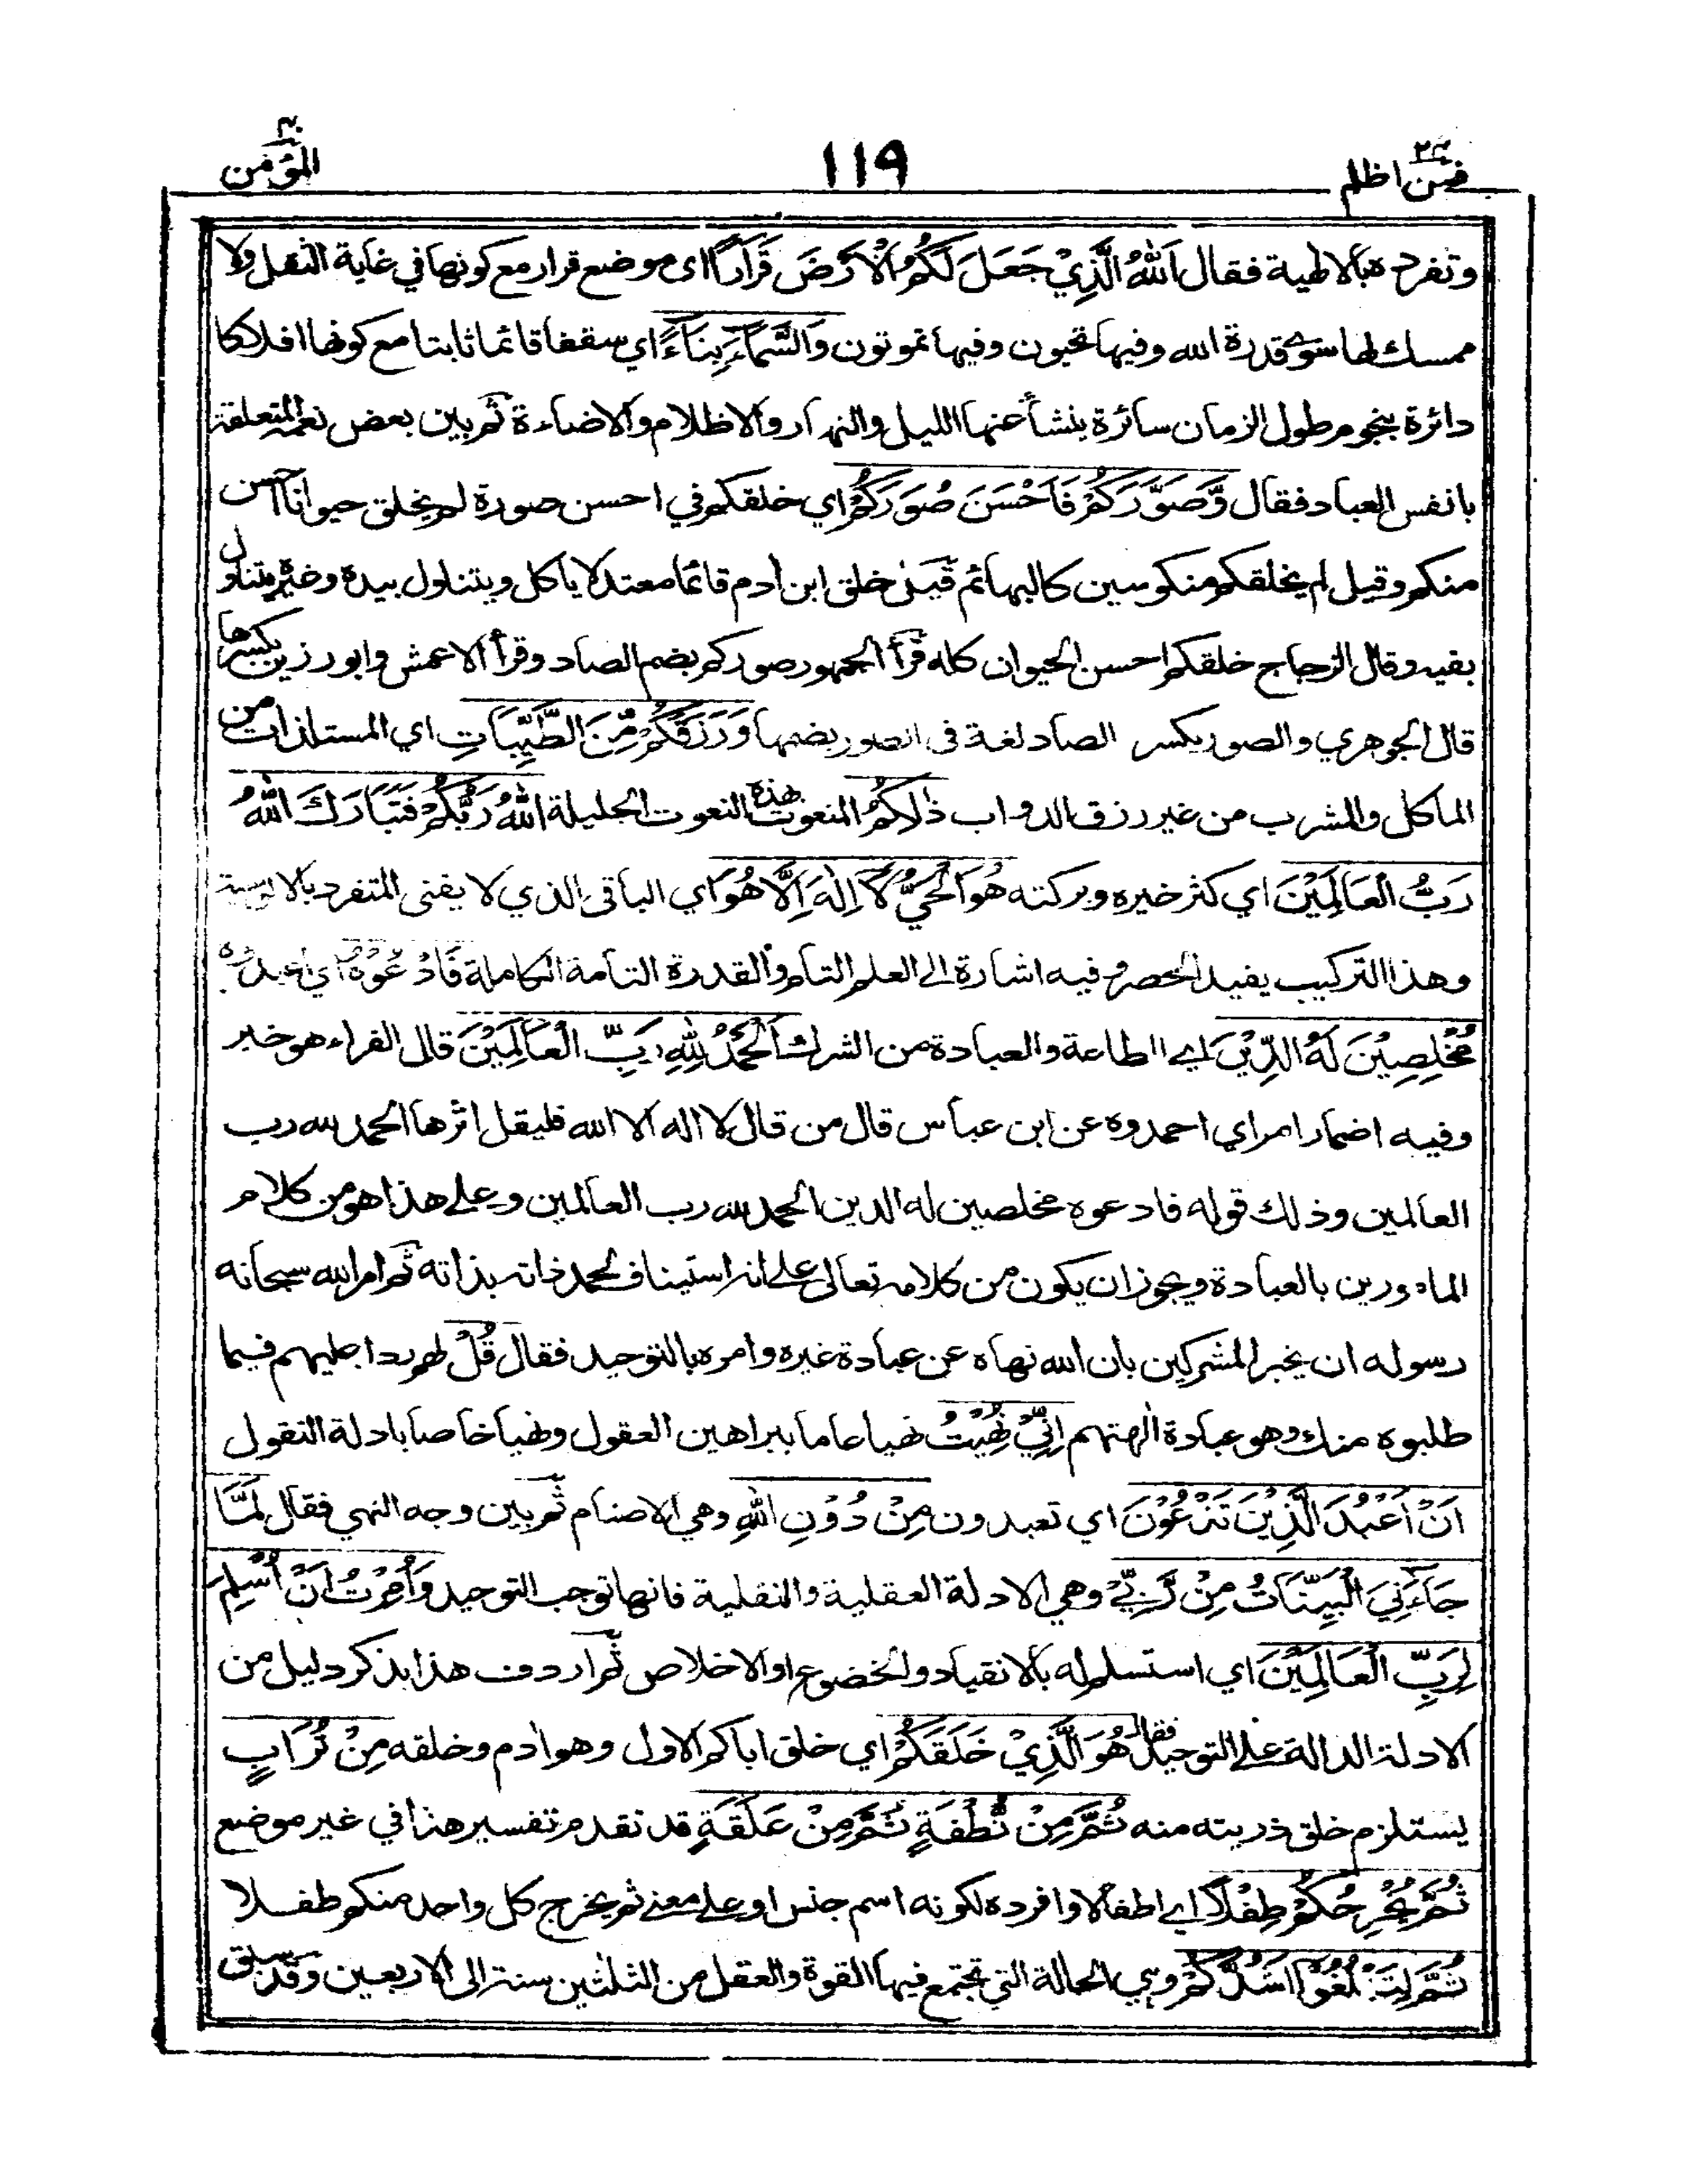 فمن اظلم ٢٤
١١٩
المؤمن ٤٠
وتفرده بالالهية فقال اَللّٰهُ الَّذِيْ جَعَلَ لَكُمُ الْاَرْضَ قَرَارًا اى موضع قرار مع كونها في غاية الثقل ولا
ممسك لها سوى قدرة الله وفيها تحيون وفيها تموتون وَالسَّمَآءَ بِنَآءً اي سقفا قائما ثابتا مع كونها افلاكا
دائرة بنجوم طول الزمان سائرة ينشأ عنها الليل والنهار والاظلام والاضاءة ثم بين بعض نعمه المتعلقة
بانفس العباد فقال وَّصَوَّرَكُمْ فَاَحْسَنَ صُوَرَكُمْ اي خلقكم في احسن صورة لم يخلق حيوانا احسن
منكم وقيل لم يخلقكم منكوسين كالبهائم قيل خلق ابن ادم قائما معتدلا ياكل ويتناول بيده وغيره يتناول
بفيه وقال الزجاج خلقكم احسن الحيوان كله قرأ الجمهور صوركم بضم الصاد وقرأ الاعمش وابو رزين بكسرها
قال الجوهري والصور بكسر الصاد لغة في الصور بضمها وَرَزَقَكُمْ مِّنَ الطَّيِّبَاتِ اي المستلذات من
الماكل والمشرب من غير رزق الدواب ذٰلِكُمُ المنعوت هذه النعوت الجليلة اللّٰهُ رَبُّكُمْ فَتَبَارَكَ اللّٰهُ
رَبُّ الْعَالَمِيْنَ اي كثر خيره وبركته هُوَ الْحَيُّ لَآ اِلٰهَ اِلَّا هُوَ اي الباقي الذي لا يفنى المتفرد بالالوهية
وهذا التركيب يفيد الحصر وفيه اشارة الى العلم التام والقدرة التامة الكاملة فَادْعُوْهُ اي اعبدوه
مُخْلِصِيْنَ لَهُ الدِّيْنَ اي الطاعة والعبادة من الشرك اَلْحَمْدُ لِلّٰهِ رَبِّ الْعَالَمِيْنَ قال الفراء هو خبر
وفيه اضمار امر اي احمدوه عن ابن عباس قال من قال لا اله الا الله فليقل اثرها الحمد لله رب
العالمين وذلك قوله فادعوه مخلصين له الدين الحمد لله رب العالمين وعلى هذا هو من كلام
المامورين بالعبادة ويجوز ان يكون من كلامه تعالى على انه استيناف لحمد ذاته بذاته ثم امر الله سبحانه
رسوله ان يخبر المشركين بان الله نهاه عن عبادة غيره وامره بالتوحيد فقال قُلْ لهم ردا عليهم فيما
طلبوه منك وهو عبادة الٰهتهم اِنِّيْ نُهِيْتُ نهيا عاما ببراهين العقول ونهيا خاصا بادلة النقول
اَنْ اَعْبُدَ الَّذِيْنَ تَدْعُوْنَ اي تعبدون مِنْ دُوْنِ اللّٰهِ وهي الاصنام ثم بين وجه النهي فقال لَمَّا
جَآءَنِيَ الْبَيِّنَاتُ مِنْ رَّبِّيْ وهي الادلة العقلية والنقلية فانها توجب التوحيد وَاُمِرْتُ اَنْ اُسْلِمَ
لِرَبِّ الْعَالَمِيْنَ اي استسلم له بالانقياد والخضوع او الاخلاص ثم اردف هذا بذكر دليل من
الادلة الدالة على التوحيد فقال هُوَ الَّذِيْ خَلَقَكُمْ اي خلق اباكم الاول وهو اٰدم وخلقه مِنْ تُرَابٍ
يستلزم خلق ذريته منه ثُمَّ مِنْ نُّطْفَةٍ ثُمَّ مِنْ عَلَقَةٍ قد تقدم تفسير هذا في غير موضع
ثُمَّ يُخْرِجُكُمْ طِفْلًا اي اطفالا وافرده لكونه اسم جنس او على معنى ثم يخرج كل واحد منكم طفلا
ثُمَّ لِتَبْلُغُوْآ اَشُدَّكُمْ وهي الحالة التي تجتمع فيها القوة والعقل من الثلثين سنة الى الاربعين وقد سبق